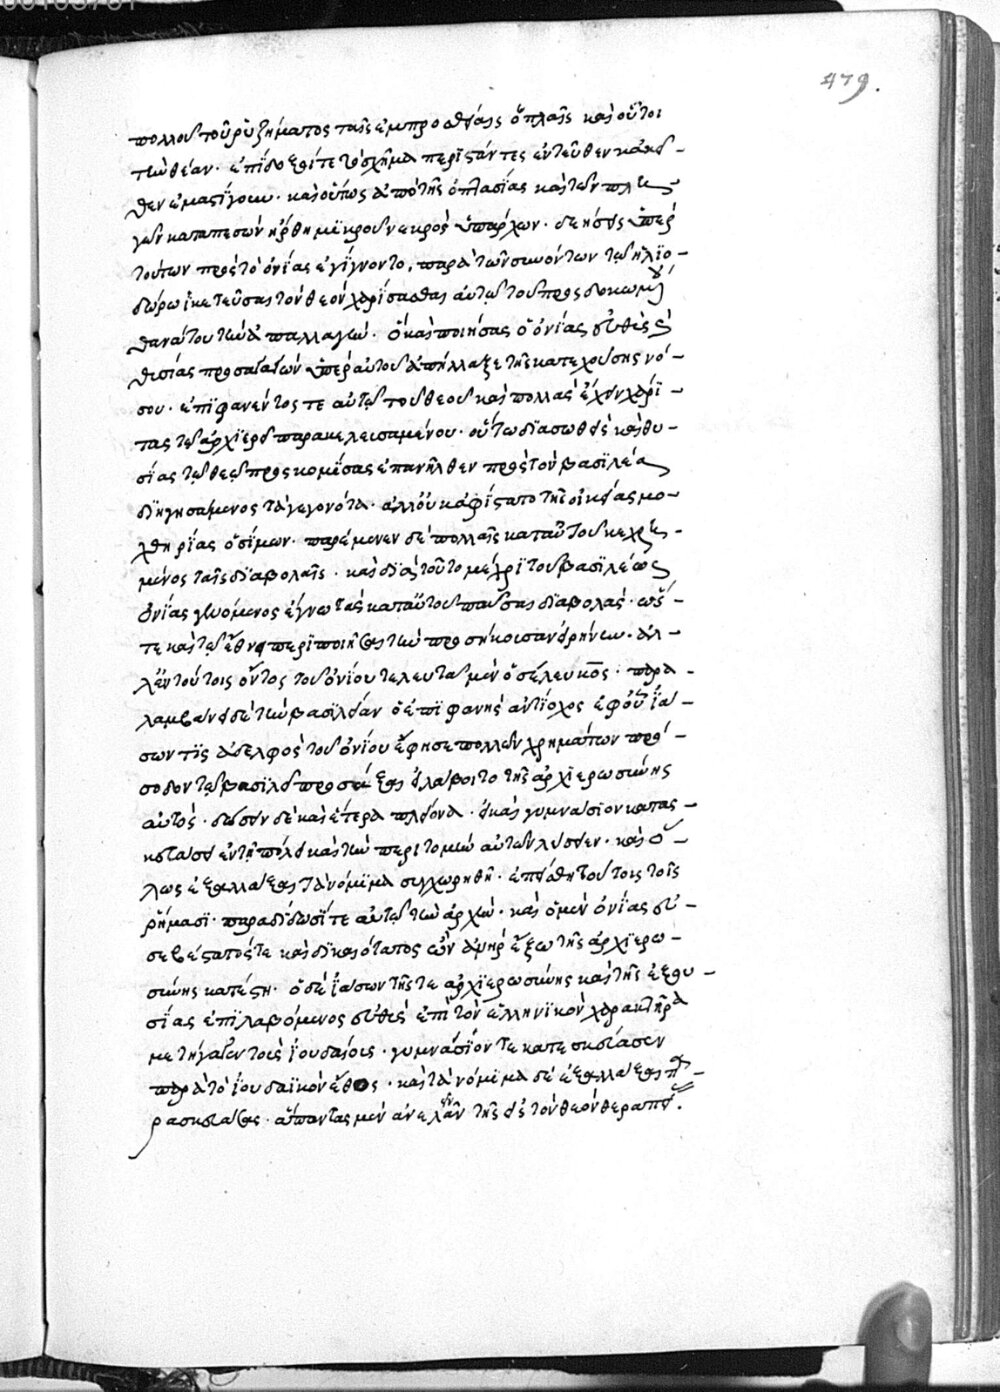 479.
πολλοῦ τοῦ ῥυζήματος ταῖς ἐμπροσθίαις ὁπλαῖς καὶ οὗτοι
τὼ θέαν. ἐπίδοξοί τε τὸ σχῆμα περιστάντες ἐντεῦθεν κἀκεῖ-
θεν ἐμαστίγουν. καὶ οὕτως ἀπὸ τῆς ὁπλασίας καὶ τῶν
καταπεσὼν ἤρθη μικροῦ νεκρὸς ὑπάρχων. δεήσεις ὑπὲρ
τούτων πρὸς τὸ ὀνίας ἐγίγνοντο, παρὰ τῶν συνόντων τῷ ἡλιο-
δώρω ἱκετεῦσαι τὸν θεὸν χαρίσασθαι αὐτῷ τοῦ προσδοκωμένου
θανάτου τὼ ἀπαλλαγὼ. ὃ καὶ ποιήσας ὁ ὀνίας εὐθὺς καὶ
θυσίας προσαγαγὼν ὑπὲρ αὐτοῦ ἀπήλλαξε τῆς κατεχούσης νό-
σου. ἐπιφανέντος τε αὐτῷ τοῦ θεοῦ καὶ πολλὰς ἔχειν χάρι-
τας τῷ ἀρχιερεῖ παρακελευσαμένου. οὕτω διασωθεὶς καὶ θυ-
σίας τῷ θεῷ προσκομίσας ἐπανῆλθεν πρὸς τὸν βασιλέα
διηγησάμενος τὰ γεγονότα. ἀλλ' οὐκ ἀφίστατο τῆς οἰκείας μο-
χθηρίας ὁ σίμων. παρέμενεν δὲ πολλαῖς κατ' αὐτοῦ κεχρη-
μένος ταῖς διαβολαῖς. καὶ διὰ τοῦτο μέχρι τοῦ βασιλέως
ὀνίας γενόμενος ἔγνω τὰς κατ' αὐτοῦ παῦσαι διαβολάς. ὥς-
τε καὶ τῷ ἔθνει περιποιῆσαι τὼ προσήκουσαν εἰρήνην. ἀλ-
λ' ἐν τούτοις ὄντος τοῦ ὀνίου τελευτᾷ μὲν ὁ σέλευκος. παρα-
λαμβάνει δὲ τὼ βασιλείαν ὁ ἐπιφανὴς ἀντίοχος ἐφ' οὗ ἰά-
σων τὶς ἀδελφὸς τοῦ ὀνίου ἔφησε πολλῶν χρημάτων πρό-
σοδον τῷ βασιλεῖ προσάξαι εἰ λάβοιτο τῆς ἀρχιερωσύνης
αὐτός. δώσειν δὲ καὶ ἕτερα πλείονα. εἰ καὶ γυμνάσιον κατας-
κευάσει ἐν τῇ πόλει καὶ τὼ περιτομὼ αὐτῶν λύσειεν. καὶ ὅ-
λως ἐξαλλάξαι τὰ νόμιμα συγχωρηθῇ. ἐπείσθη τούτοις τοῖς
ῥήμασι. παραδίδωσί τε αὐτῷ τὼ ἀρχὼ. καὶ ὁ μὲν ὀνίας εὐ-
σεβέστατός τε καὶ δικαιότατος ὢν ἀνὴρ ἔξω τῆς ἀρχιερω-
σύνης κατέστη. ὁ δὲ ἰάσων τῆς τε ἀρχιερωσύνης καὶ τῆς ἐξου-
σίας ἐπιλαβόμενος εὐθὺς ἐπὶ τὸν ἑλληνικὸν χαρακτῆρα
μετήγαγεν τοὺς ἰουδαίους. γυμνάσιόν τε κατεσκεύασεν
παρὰ τὸ ἰουδαϊκὸν ἔθος. καὶ τὰ νόμιμα δὲ ἐξαλλάξαι πα-
ρασκευάσας. ἅπαντας μὲν ἀνελὼν τῆς εἰς τὸν θεὸν θεραπεί.